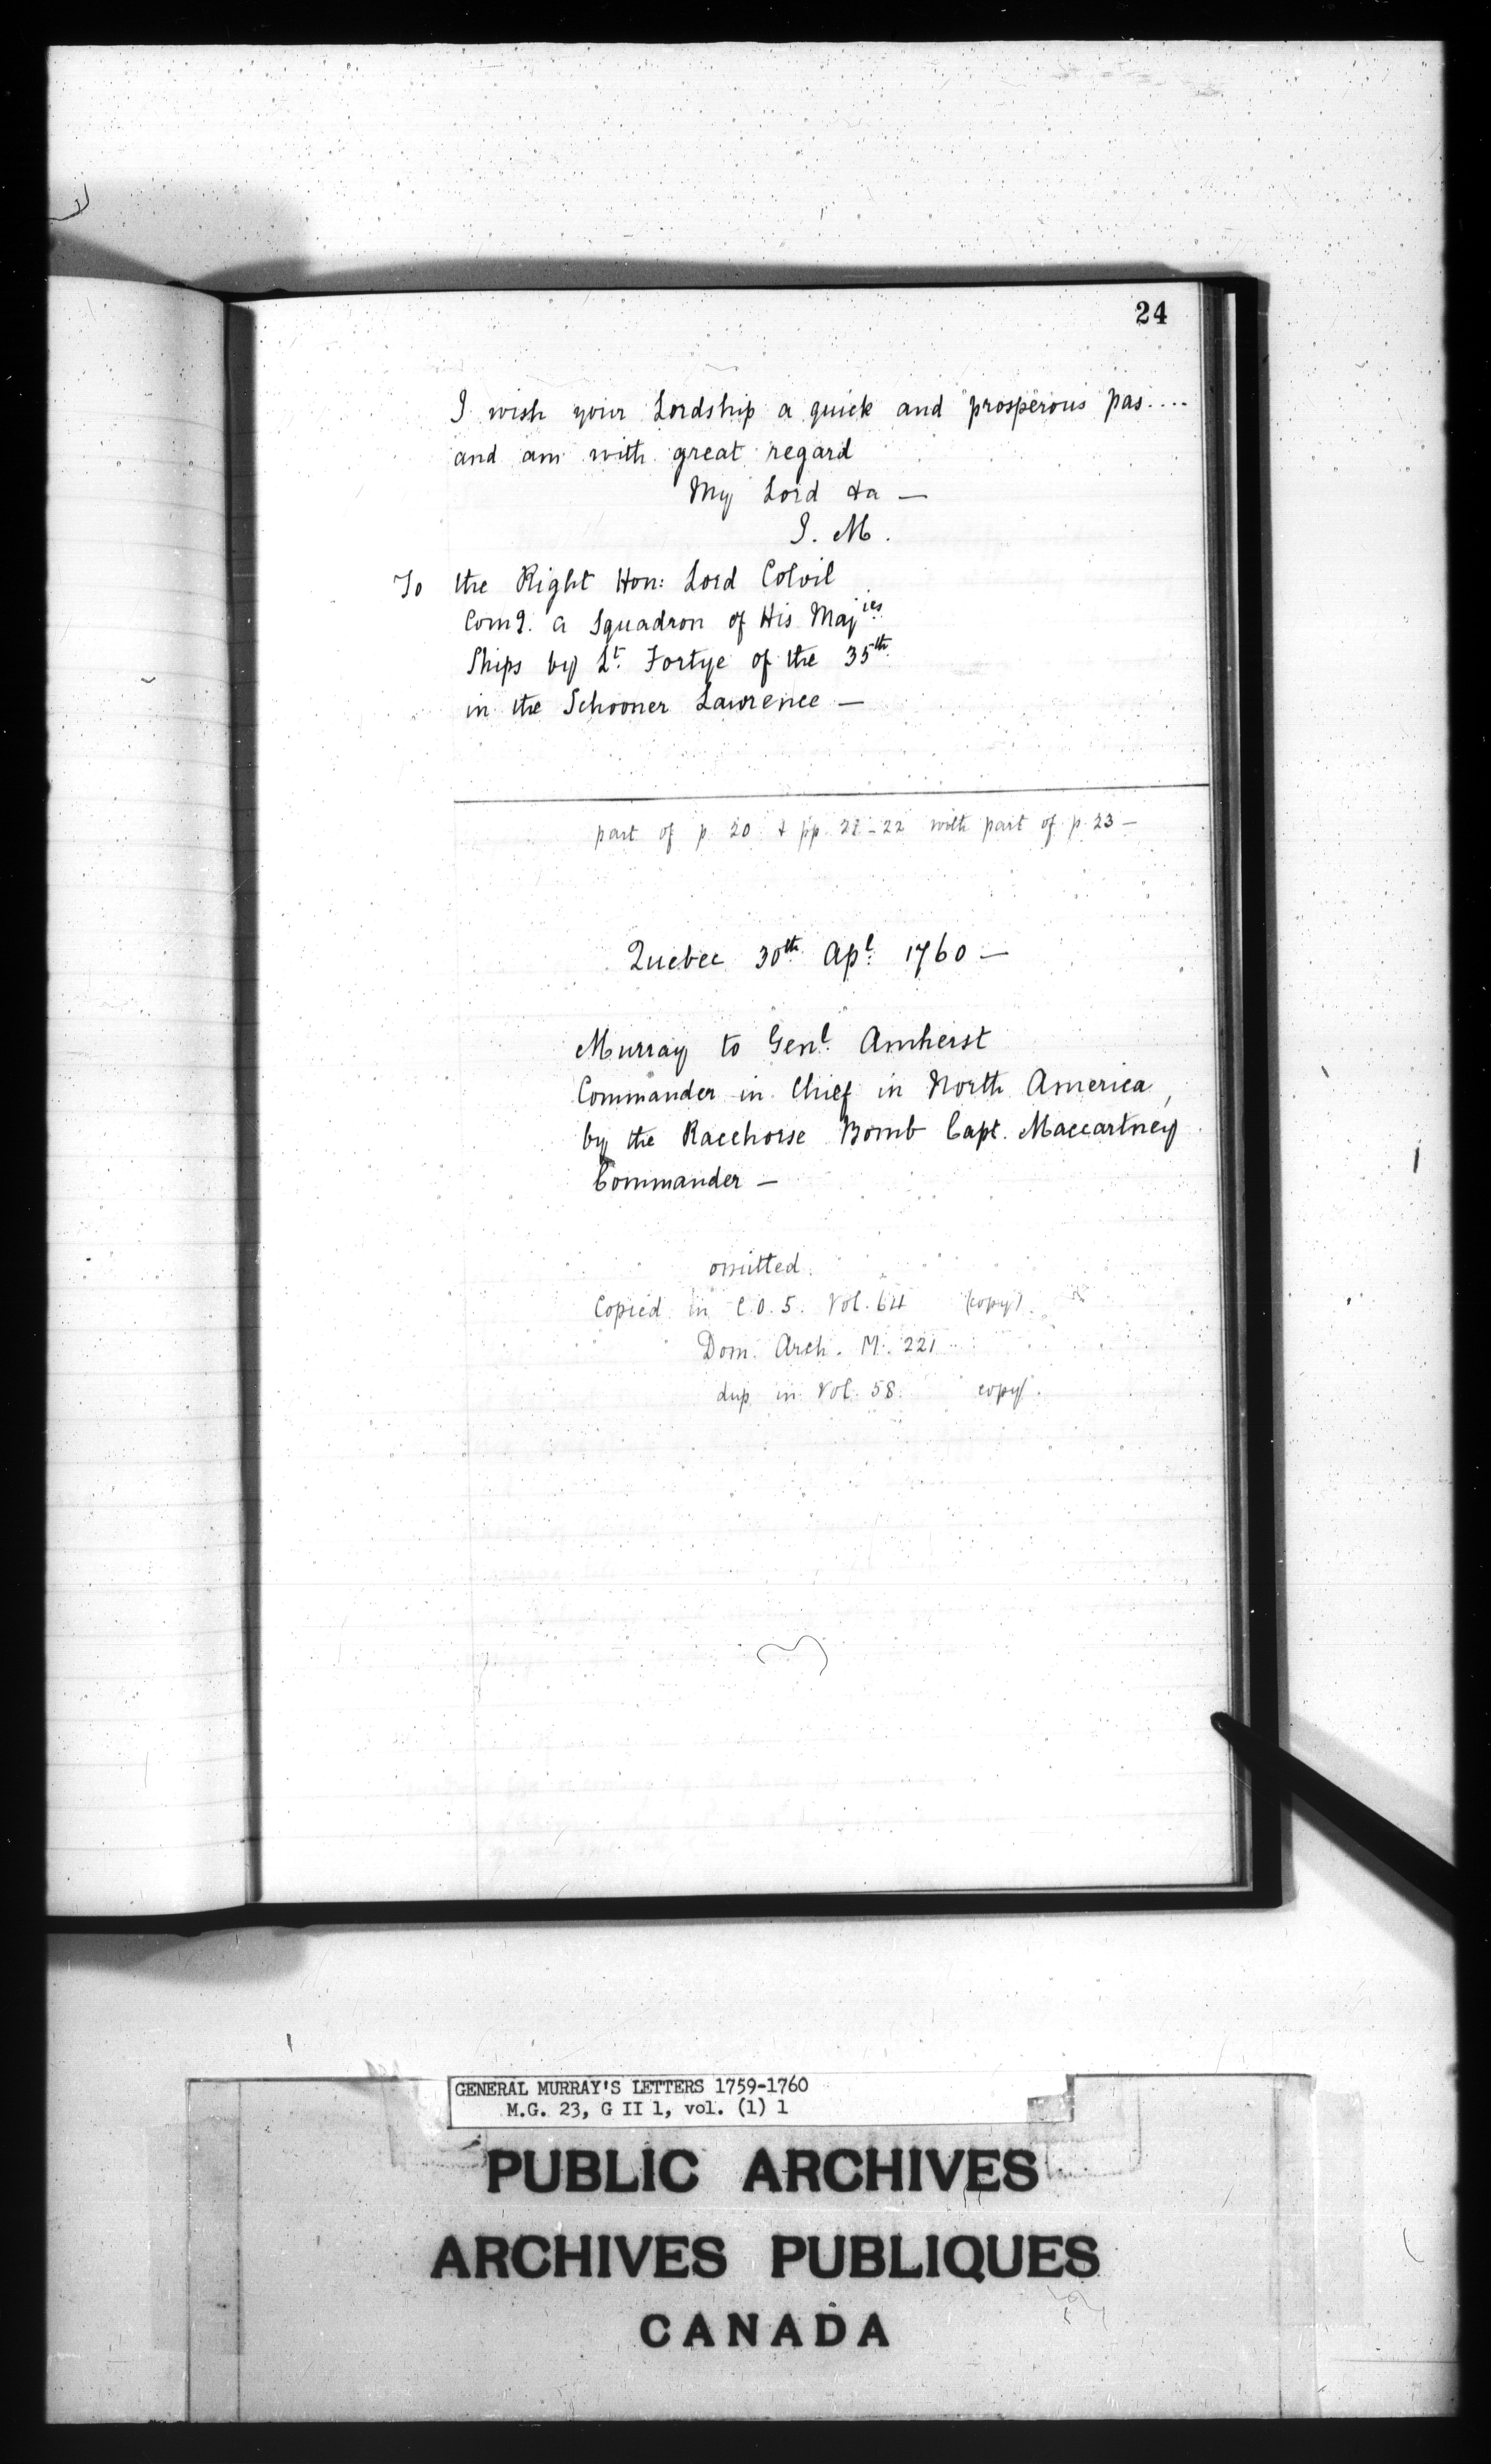 24
I wish your Lordship a quick and prosperous pas....
and am with great regard
My Lord &a —
J. M.
To the Right Hon: Lord Colvil
Comg. a Squadron of His Majies
Ships by Lt. Fortye of the 35th
in the Schooner Lawrence —
part of p. 20 & pp. 21-22 with part of p. 23 —
Quebec 30th Apl. 1760 —
Murray to Genl. Amherst
Commander in Chief in North America,
by the Racehorse Bomb Capt. Maccartney
Commander —
omitted.
Copied in C.O. 5. Vol. 64 (copy).
Dom. Arch. M. 221
dup in Vol. 58. copy.
GENERAL MURRAY'S LETTERS 1759-1760
M.G. 23, G II 1, vol. (1) 1
PUBLIC ARCHIVES
ARCHIVES PUBLIQUES
CANADA